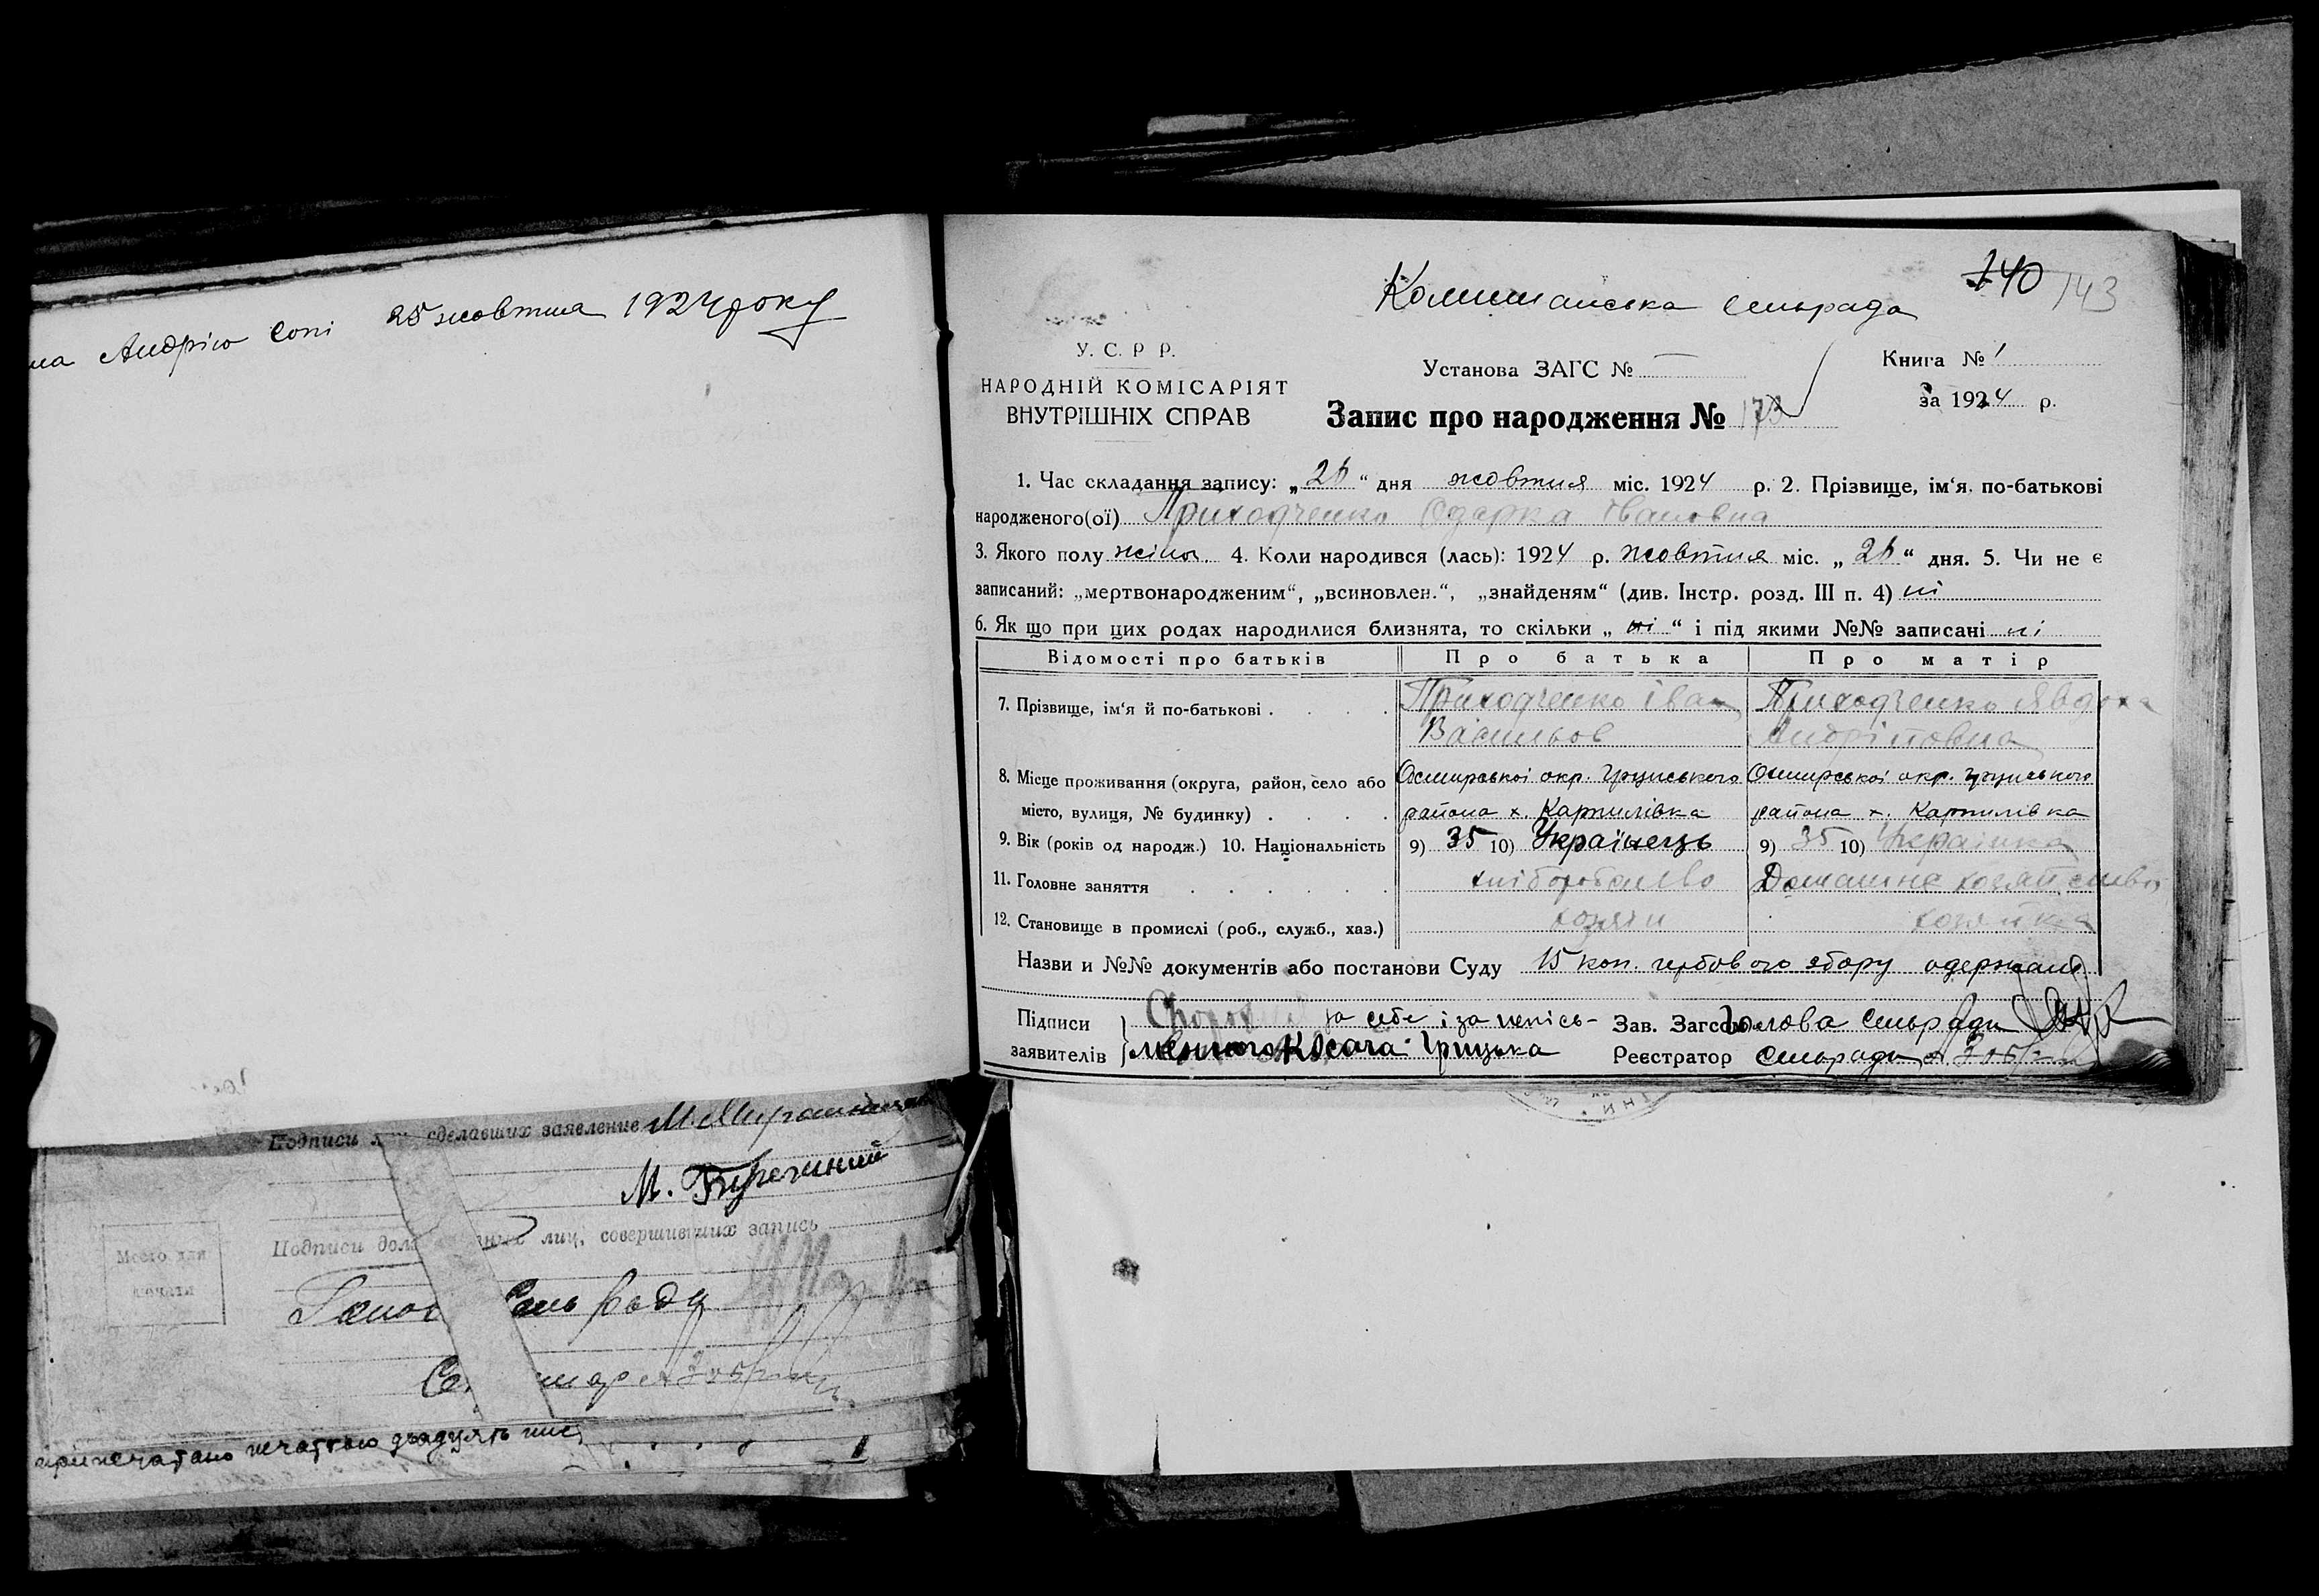 Андрію Соні 25 жовтня 1924 року
Подписи сделавших заявление
М.
Подписи лиц, совершивших запись
Место для
печати
140 143
сельрада
У. С. Р Р.
НАРОДНІЙ КОМІСАРІЯТ
ВНУТРІШНІХ СПРАВ
Установа ЗАГС № —
Книга № 1
за 1924 р.
Запис про народження № 173
1. Час складання запису: „26“ дня жовтня міс. 1924 р. 2. Прізвище, ім‘я. по-батькові
народженого(ої) Приходченко Одарка Івановна
3. Якого полу жіноч. 4. Коли народився (лась): 1924 р. жовтня міс. „26“ дня. 5. Чи не є
записаний: „мертвонародженим“, „всиновлен.“, „знайденям“ (див. Інстр. розд. III п. 4) ні
6. Як що при цих родах народилися близнята, то скільки „ні“ і під якими №№ записані ні
Відомості про батьків Про батька Про матір
7. Прізвище, ім‘я й по-батькові . . . . Приходченко Іван Приходченко Явдоха
Васильов Андріповна
8. Місце проживання (округа, район, село або окр. окр.
місто, вулиця, № будинку) . . . . района х. Карпилівка района х. Карпилівка
9. Вік (років од народж.) 10. Національність 9) 35 10) Українець 9) 35 10) Українка
11. Головне заняття . . . . . . хліборобство Домашнє хозяйство
12. Становище в промислі (роб., служб., хаз.) хозяін хозяйка
Назви и №№ документів або постанови Суду 15 коп. гербового збору одержано
Підписи за себе і за непись-
заявителів менного Косача Грицька
Зав. Загсом Голова Сельради
Реєстратор Сельради